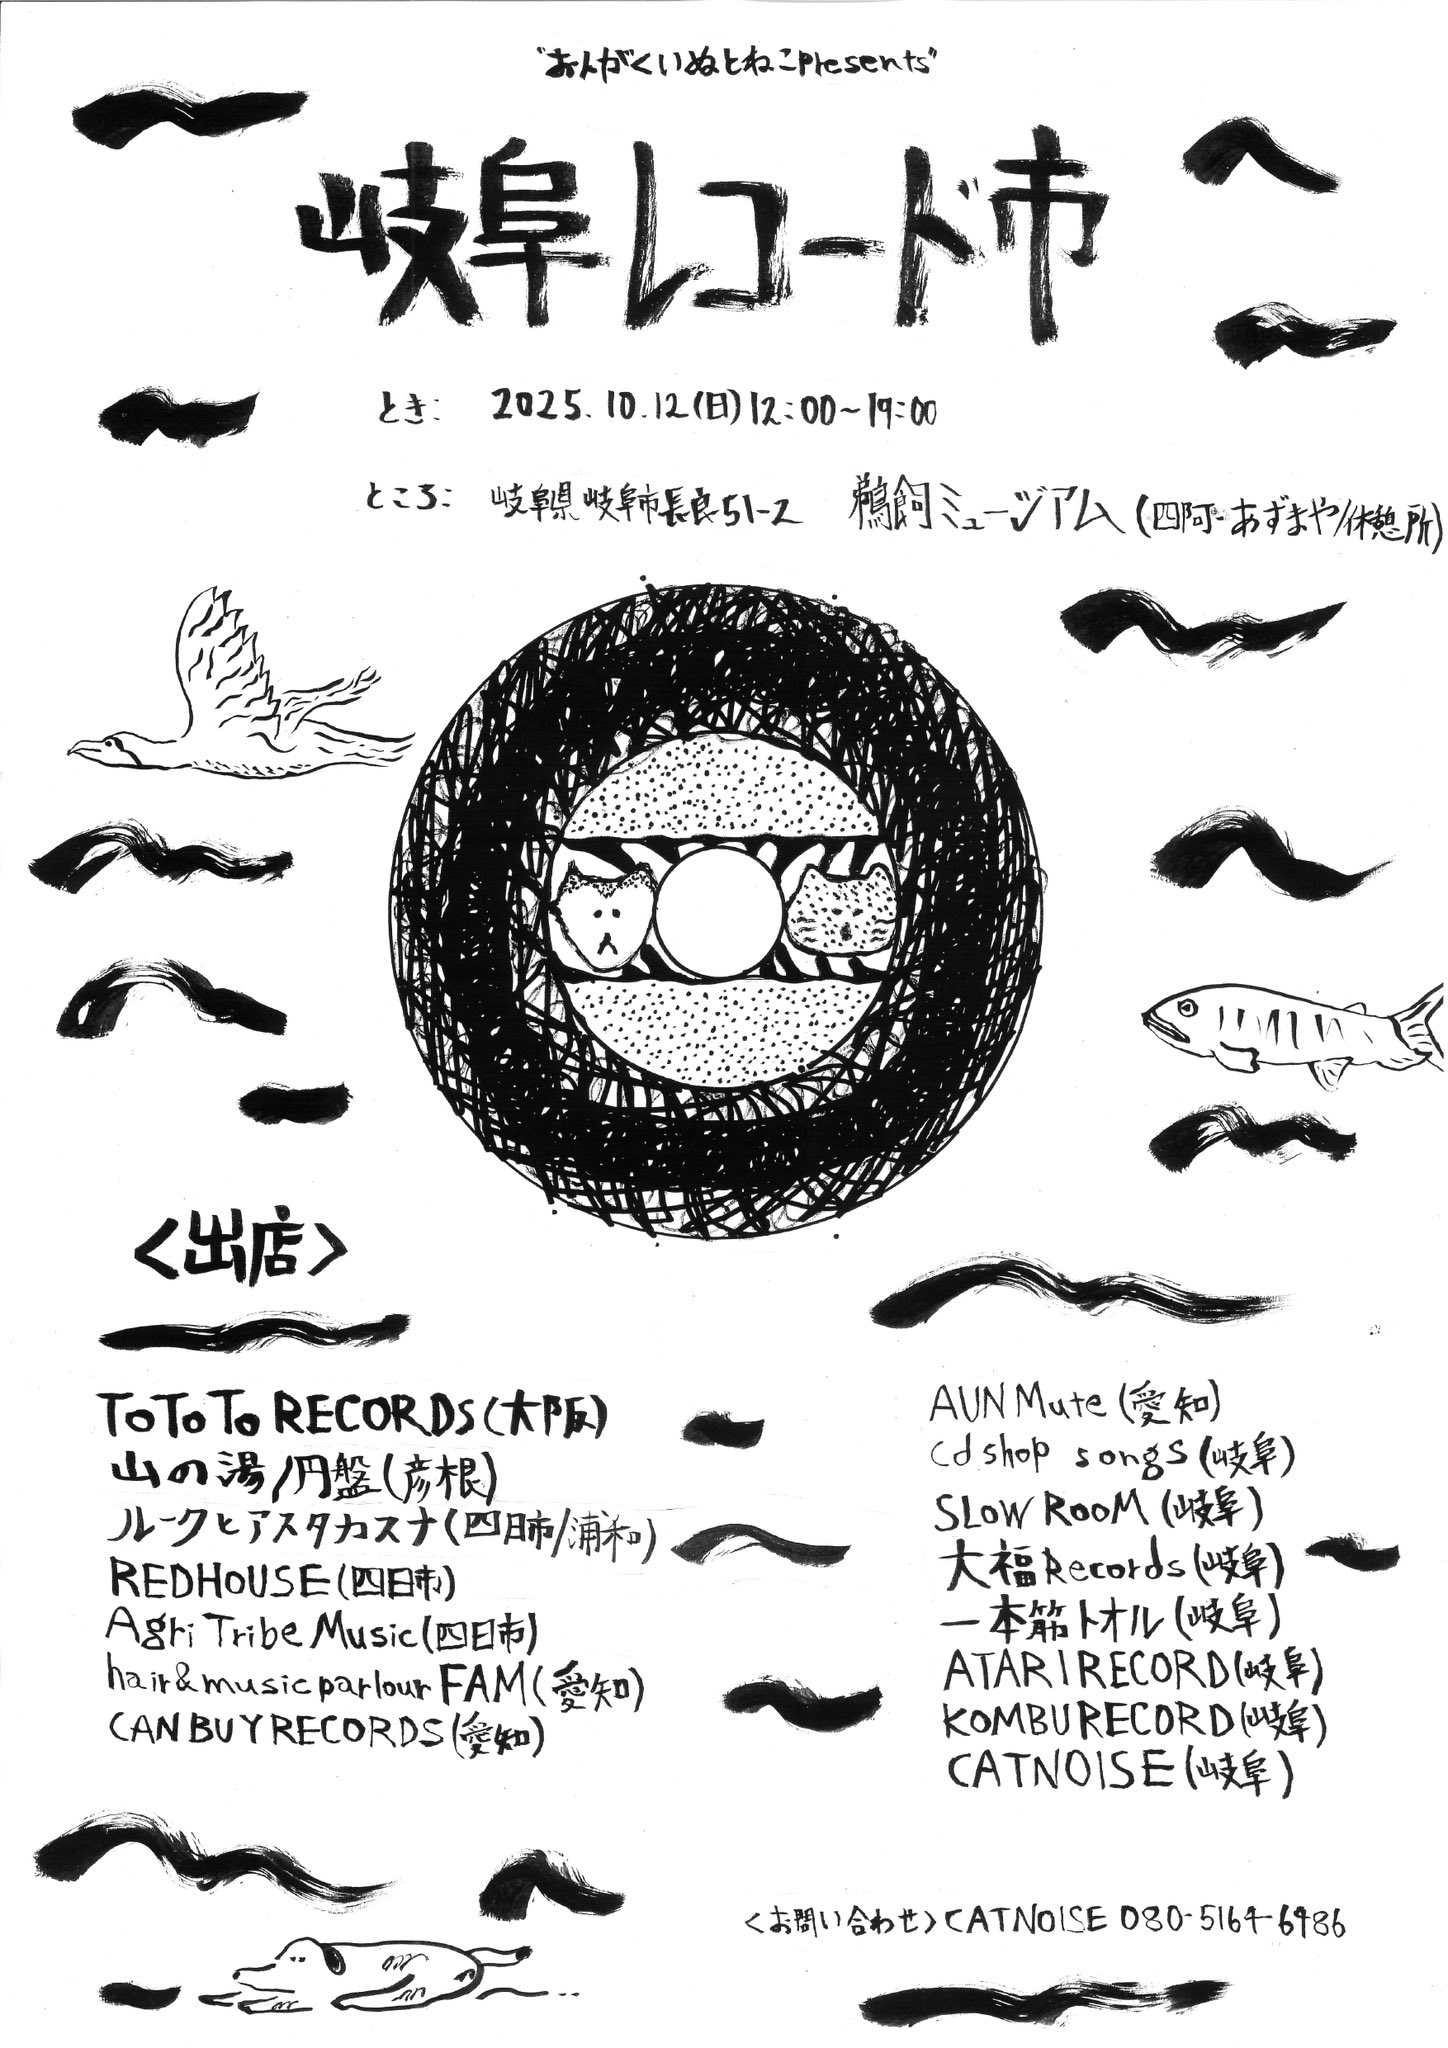 "おんがくいぬとねこpresents"
岐阜レコード市
とき: 2025.10.12(日)12:00~19:00
ところ: 岐阜県岐阜市長良51-2 鵜飼ミュージアム(四阿-あずまや/休憩所)
<出店>
ToToTo RECORDS(大阪)
山の湯/円盤(彦根)
ルークとアスタカスナ(四日市/浦和)
REDHOUSE(四日市)
Agri Tribe Music(四日市)
hair&music parlour FAM(愛知)
CAN BUY RECORDS(愛知)
AUN Mute(愛知)
cd shop songs(岐阜)
SLOW ROOM(岐阜)
大福Records(岐阜)
一本筋トオル(岐阜)
ATARI RECORD(岐阜)
KOMBU RECORD(岐阜)
CATNOISE(岐阜)
<お問い合わせ>CATNOISE 080-5164-6986